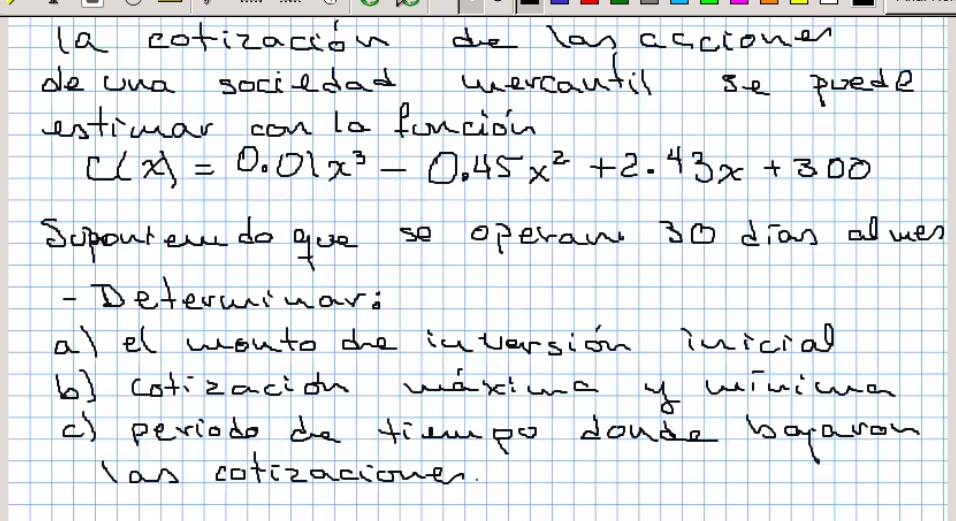 la cotización de las acciones
de una sociedad mercantil se puede
estimar con la función
C(x) = 0.01x³ - 0.45x² + 2.43x + 300
que se operan 30 días al mes
- Determinar:
a) el monto de inversión inicial
b) cotización máxima y mínima
c) periodo de tiempo donde bajaron
las cotizaciones.